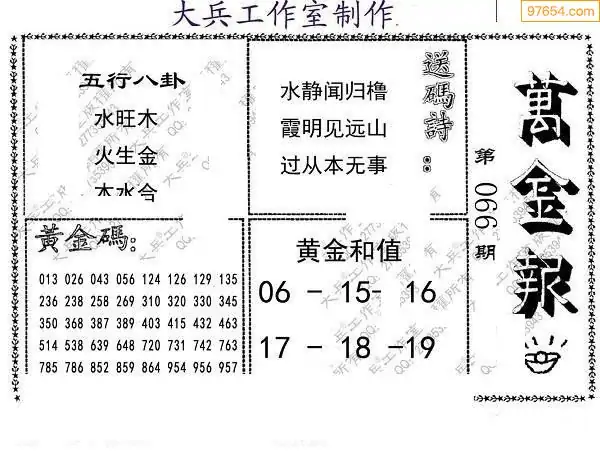 大兵工作室制作
97654.com
五行八卦
水旺木
火生金
木水合
送碼詩：
水静闻归橹
霞明见远山
过从本无事
萬金報
第 066 期
黃金碼：
013 026 043 056 124 126 129 135
236 238 258 269 310 320 330 345
350 368 387 389 403 415 432 463
514 538 639 648 720 731 742 763
785 786 852 859 864 954 956 957
黄金和值
06 - 15- 16
17 - 18 -19